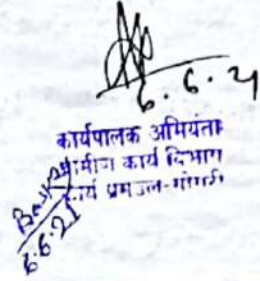 6.6.21
कार्यपालक अभियंता
ग्रामीण कार्य विभाग
कार्य प्रमंडल-गोगरी
6.6.21